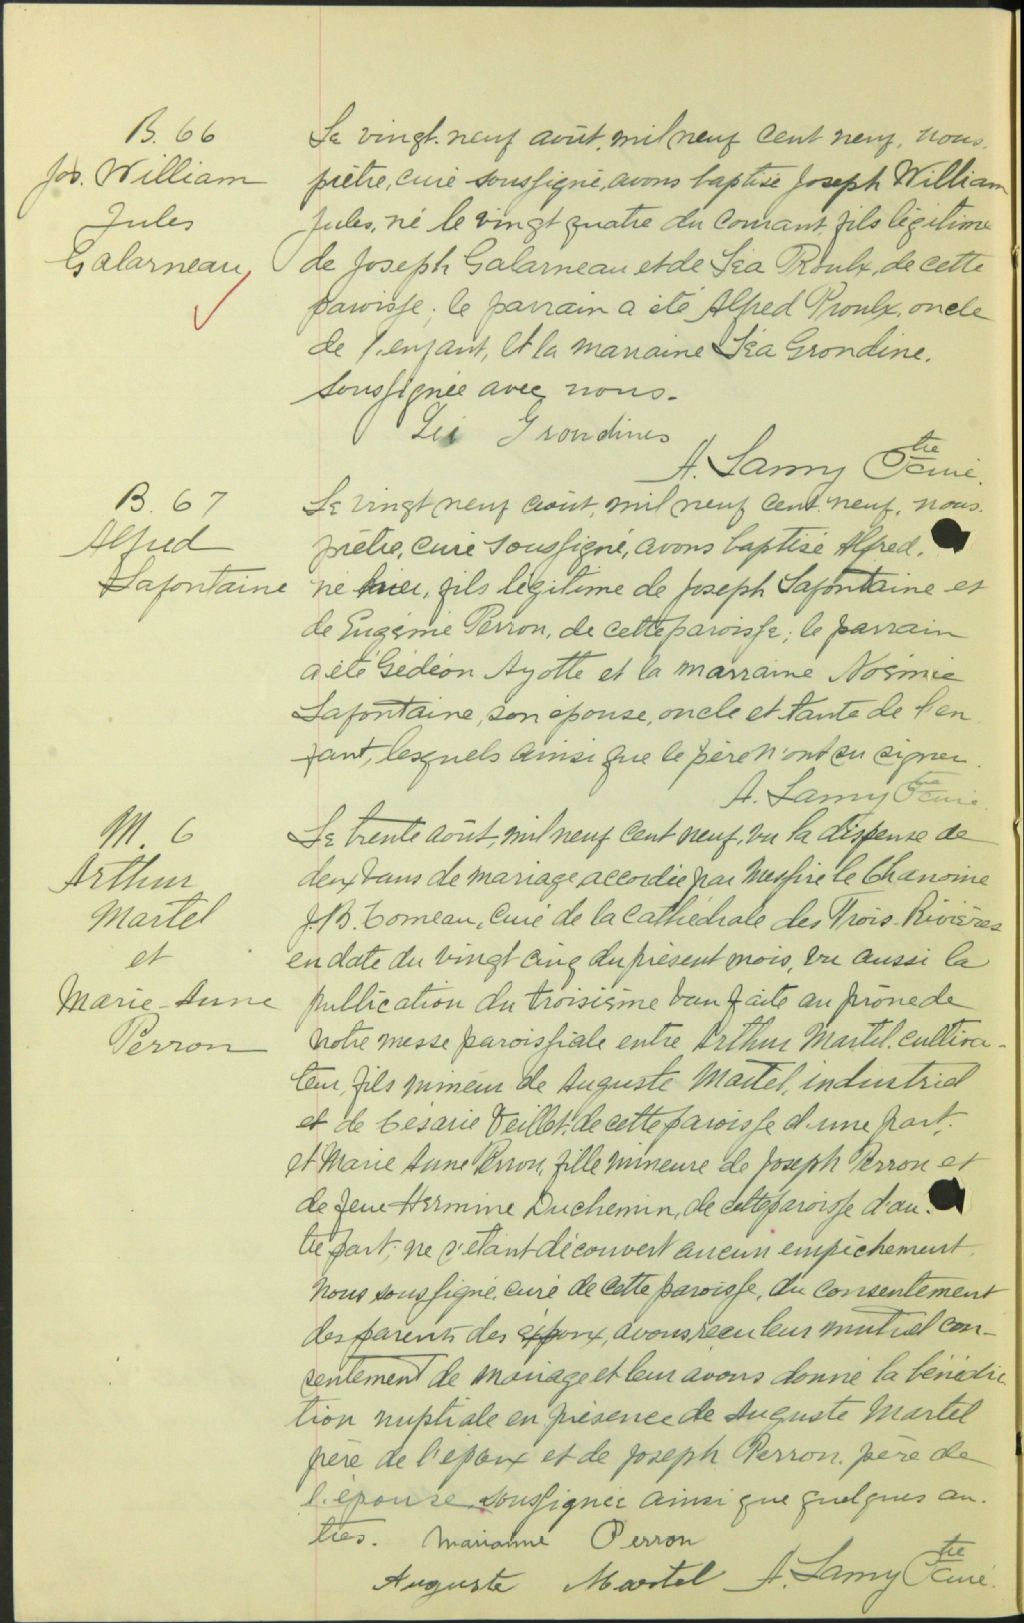 B. 66
Jos. William
Jules
Galarneau
Le vingt-neuf août, mil neuf cent neuf, nous
prêtre, curé soussigné, avons baptisé Joseph William
Jules, né le vingt quatre du courant, fils légitime
de Joseph Galarneau et de Léa Proulx, de cette
paroisse; le parrain a été Alfred Proulx, oncle
de l'enfant, et la marraine Léa Grondine.
soussignée avec nous.
Léa Grondines
A. Lamy Ptre curé.
B. 67
Alfred
Lafontaine
Le vingt neuf août, mil neuf cent neuf, nous
prêtre, curé soussigné, avons baptisé Alfred,
né hier, fils légitime de Joseph Lafontaine et
de Eugénie Perron, de cette paroisse; le parrain
a été Gédéon Ayotte et la marraine Noémie
Lafontaine, son épouse, oncle et tante de l'en
fant, lesquels ainsi que le père n'ont su signer.
A. Lamy Ptre curé.
M. 6
Arthur
Martel
et
Marie-Anne
Perron
Le trente août, mil neuf cent neuf, vu la dispense de
deux bans de mariage accordée par Messire le Chanoine
J.B. Comeau, curé de la cathédrale des Trois-Rivières
en date du vingt cinq du présent mois, vu aussi la
publication du troisième ban faite au prône de
notre messe paroissiale entre Arthur Martel, cultiva-
teur, fils mineur de Auguste Martel, industriel
et de Césarie Veillet, de cette paroisse d'une part;
et Marie Anne Perron, fille mineure de Joseph Perron et
de feue Hermine Duchemin, de cette paroisse d'au-
tre part; ne s'étant découvert aucun empêchement.
Nous soussigné, curé de cette paroisse, du consentement
des parents des époux, avons reçu leur mutuel con-
sentement de mariage et leur avons donné la bénédic-
tion nuptiale en présence de Auguste Martel
père de l'époux et de Joseph Perron, père de
l'épouse, soussignée ainsi que quelques au-
tres. Marianne Perron
Auguste Martel A. Lamy Ptre curé.